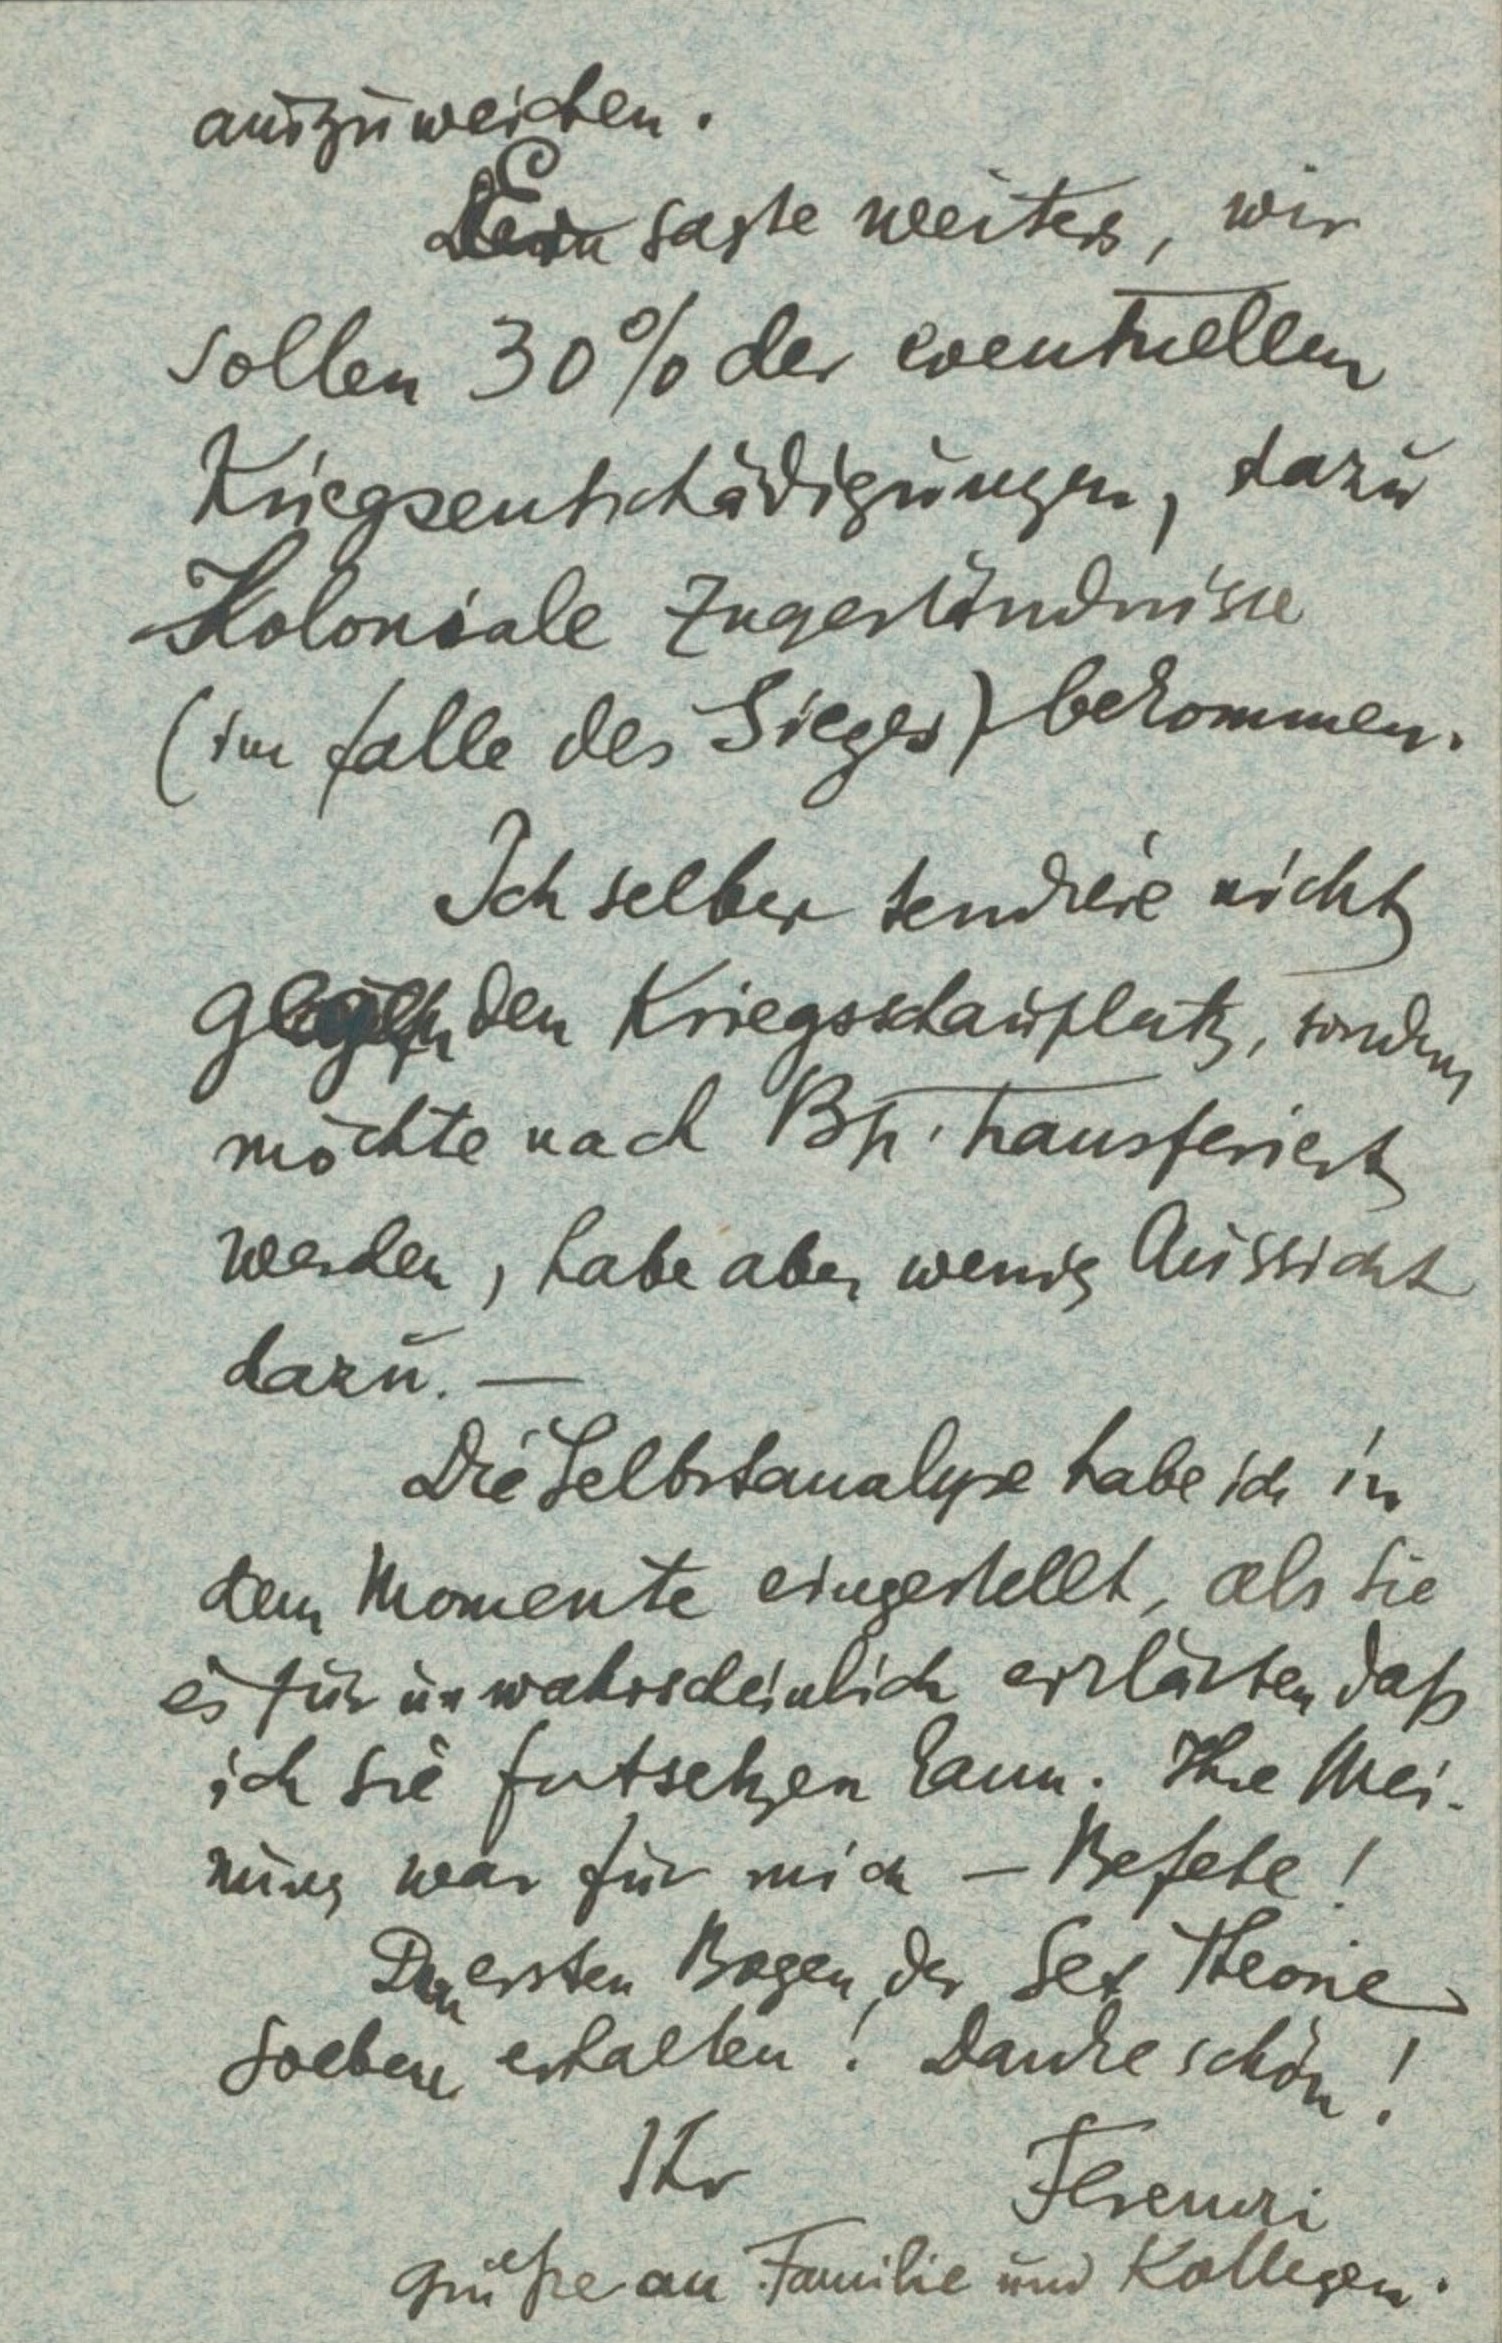 auszuweichen.
Er sagte weiters, wir
sollen 30% der eventuellen
Kriegsentschädigungen, dazu
Koloniale Zugeständnisse
(im falle des Sieges) bekommen.
Ich selber tendiere nicht
gegen den Kriegsschauplatz, sondern
möchte nach Bp. transferiert
werden, habe aber wenig Aussicht
dazu. —
Die Selbstanalyse habe ich in
dem Momente eingestellt, als Sie
es für unwahrscheinlich erklärten daß
ich sie fortsetzen kann. Ihre Mei-
nung war für mich – Befehl!
Den ersten Bogen der Sex Theorie
soeben erhalten! Danke schön!
Ihr Ferenczi
Grüße an Familie und Kollegen.